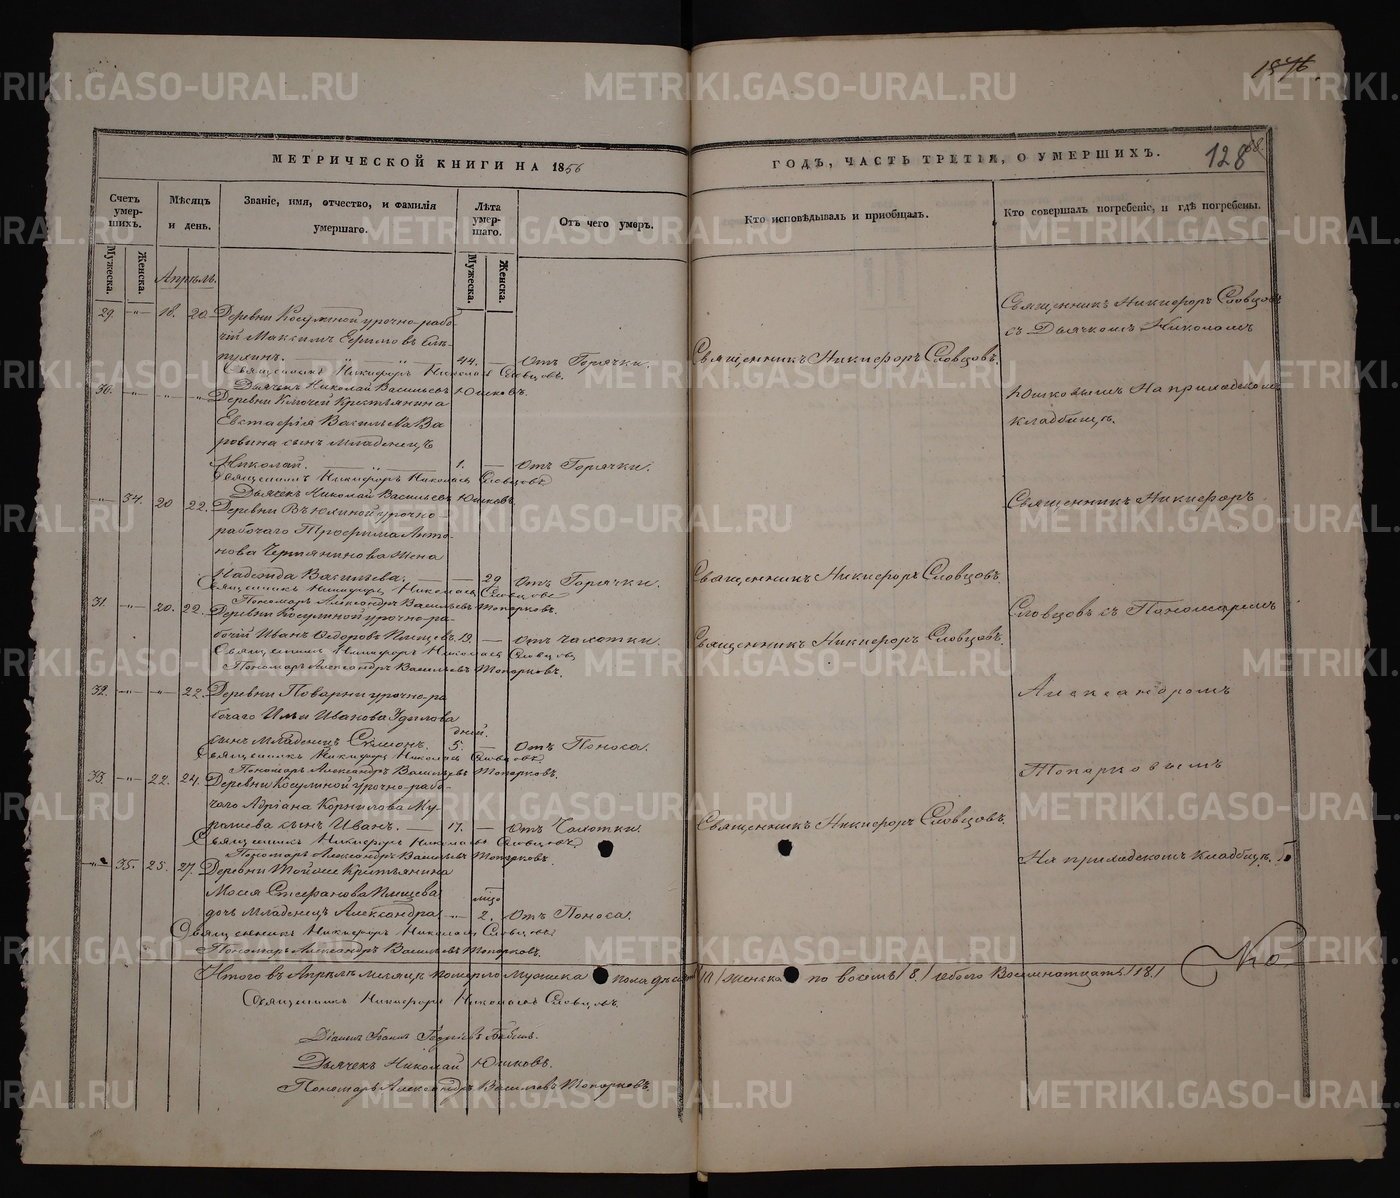 1876
МЕТРИЧЕСКОЙ КНИГИ НА 1856
ГОДЪ, ЧАСТЬ ТРЕТІЯ, О УМЕРШИХЪ.
128
68.
Счетъ умер-шихъ.
Мѣсяцъ и день.
Званіе, имя, отчество, и фамилія умершаго.
Лѣта умер-шаго.
Отъ чего умеръ.
Кто исповѣдывалъ и пріобщалъ.
Кто совершалъ погребеніе, и гдѣ погребены.
Мужеска.
Женска.
Мужеска.
Женска.
Апрѣль.
29. — 18. 20. Деревни Косулиной урочно-рабо-
чій Максимъ Ефимовъ
44. — Отъ Горячки.
Священникъ Никифоръ Словцовъ.
Священникъ Никифоръ Николаевъ Словцовъ.
Дьячекъ Николай Васильевъ Юшковъ.
30. — „ — „ — Деревни Ключей Крестьянина
Евстафія Васильева Ва
ровина сынъ младенецъ
Николай. — „ — 1. — Отъ Горячки.
Священникъ Никифоръ Николаевъ Словцовъ
Дьячекъ Николай Васильевъ Юшковъ.
— 34. 20 22. Деревни урочно-
рабочаго Трофима Анто-
нова жена
Надежда Васильева. — — 29 Отъ Горячки.
Священникъ Никифоръ Словцовъ.
Священникъ Никифоръ Николаевъ Словцовъ
Пономарь Александръ Васильевъ Топорковъ.
31. — 20. 22. Деревни Косулиной урочно-ра-
бочій Иванъ Ѳедоровъ Пѣнщевъ. 19. — Отъ чахотки.
Священникъ Никифоръ Словцовъ.
Священникъ Никифоръ Николаевъ Словцовъ
Пономарь Александръ Васильевъ Топорковъ.
32. — „ — 22. Деревни Поварни урочно-ра
бочаго Ильи Иванова
дней.
сынъ младенецъ Симеонъ. 5. — Отъ Поноса.
Священникъ Никифоръ Николаевъ Словцовъ
Пономарь Александръ Васильевъ Топорковъ.
33. — 22. 24. Деревни Косулиной урочно-рабо-
чаго Адріана Корнилова Му-
рашева сынъ Иванъ. — 17. — Отъ Чахотки.
Священникъ Никифоръ Словцовъ.
Священникъ Никифоръ Николаевъ Словцовъ
Пономарь Александръ Васильевъ Топорковъ.
„ 35. 25. 27. Деревни Крестьянина
Стефанова
дочь младенецъ Александра — „ — 2. Отъ Поноса.
Священникъ Никифоръ Николаевъ Словцовъ
Пономарь Александръ Васильевъ Топорковъ.
Священникъ Никифоръ Словцовъ
съ Дьячкомъ Николаемъ
Юшковымъ На приходскомъ
кладбищѣ.
Священникъ Никифоръ
Словцовъ съ Пономаремъ
Александромъ
Топорковымъ
На приходскомъ кладбищѣ.
Итого въ Апрѣлѣ мѣсяцѣ померло Мужеска пола десять /10/ женска по восемь /8./ обоего Восемнатцать /18./
Священникъ Никифоръ Николаевъ Словцовъ.
Дьячекъ Николай Юшковъ.
Пономарь Александръ Васильевъ Топорковъ.
METRIKI.GASO-URAL.RU